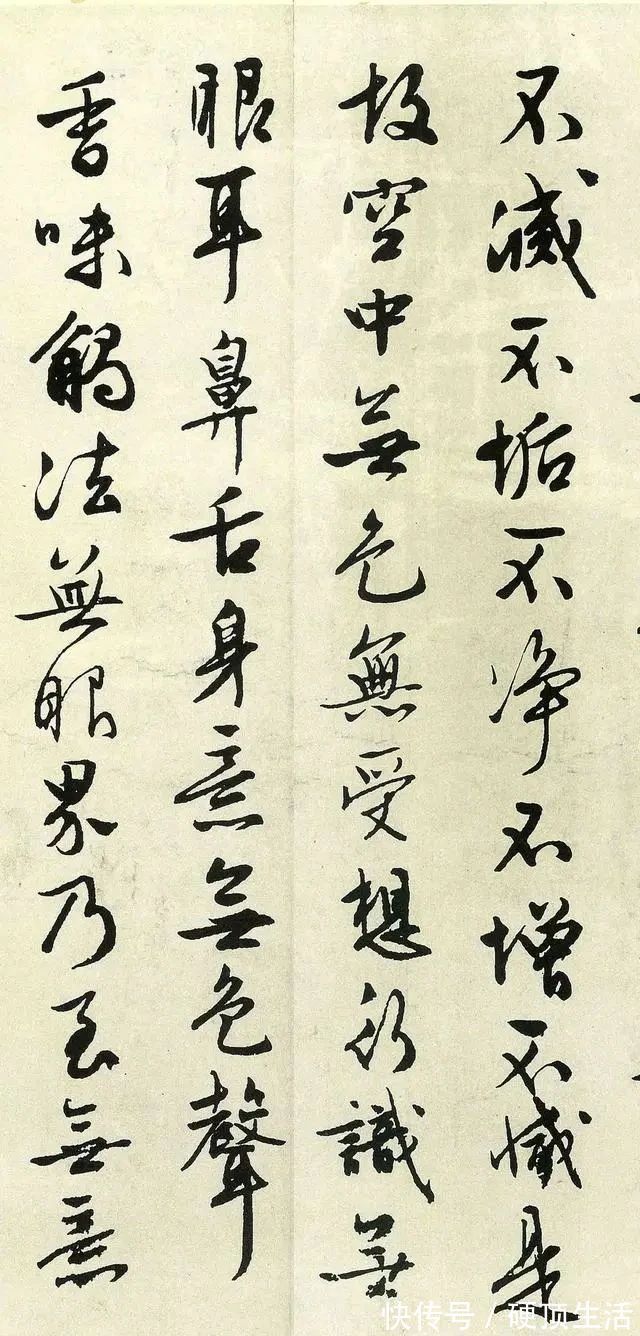 不滅不垢不淨不增不減是
故空中無色無受想行識無
眼耳鼻舌身意無色聲
香味觸法無眼界乃至無意
快传号 / 硬顶生活